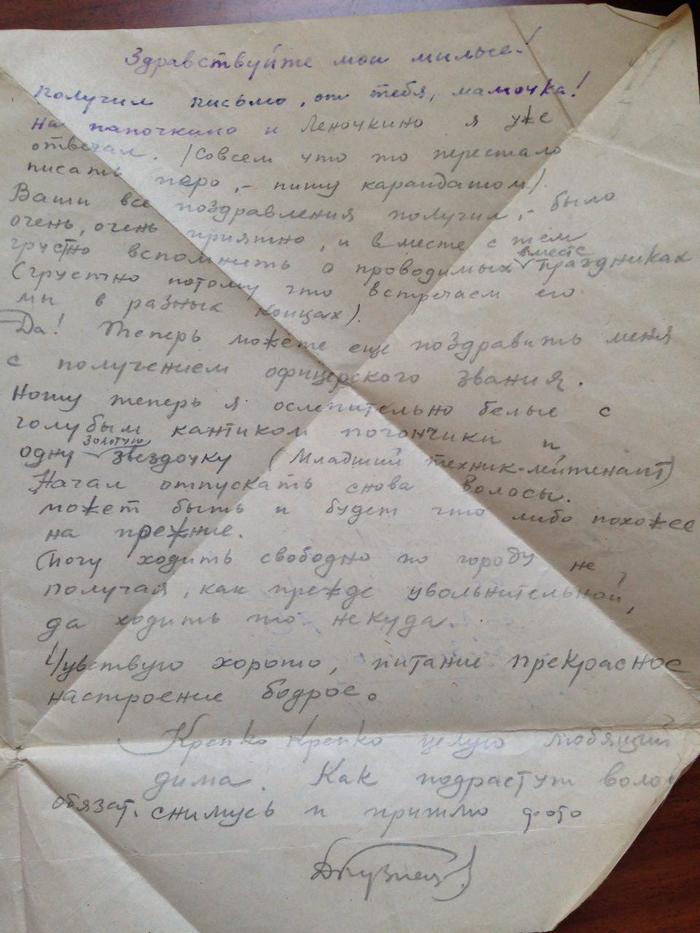 Здравствуйте мои милые!
Получил письмо, от тебя, мамочка!
На папочкино и Леночкино я уже
отвечал. (Совсем что то перестало
писать перо, - пишу карандашом).
Ваши все поздравления получил, - было
очень, очень приятно, и в месте с тем
грустно вспомнить о проводимых вместе праздниках
(грустно потому что встречаем его
мы в разных концах).
Да! Теперь можете еще поздравить меня
с получением офицерского звания.
Ношу теперь я ослепительно белые с
голубым кантиком погончики и
одну золотую звездочку (Младший техник-лейтенант)
Начал отпускать снова волосы.
может быть и будет что либо похожее
на прежние.
Могу ходить свободно по городу не
получая, как прежде увольнительной,
да ходить то некуда.
Чувствую хорошо, питание прекрасное
настроение бодрое.
Крепко Крепко целую любящий
Дима. Как подрастут воло
обязат. снимусь и пришлю фото
ДКузнец